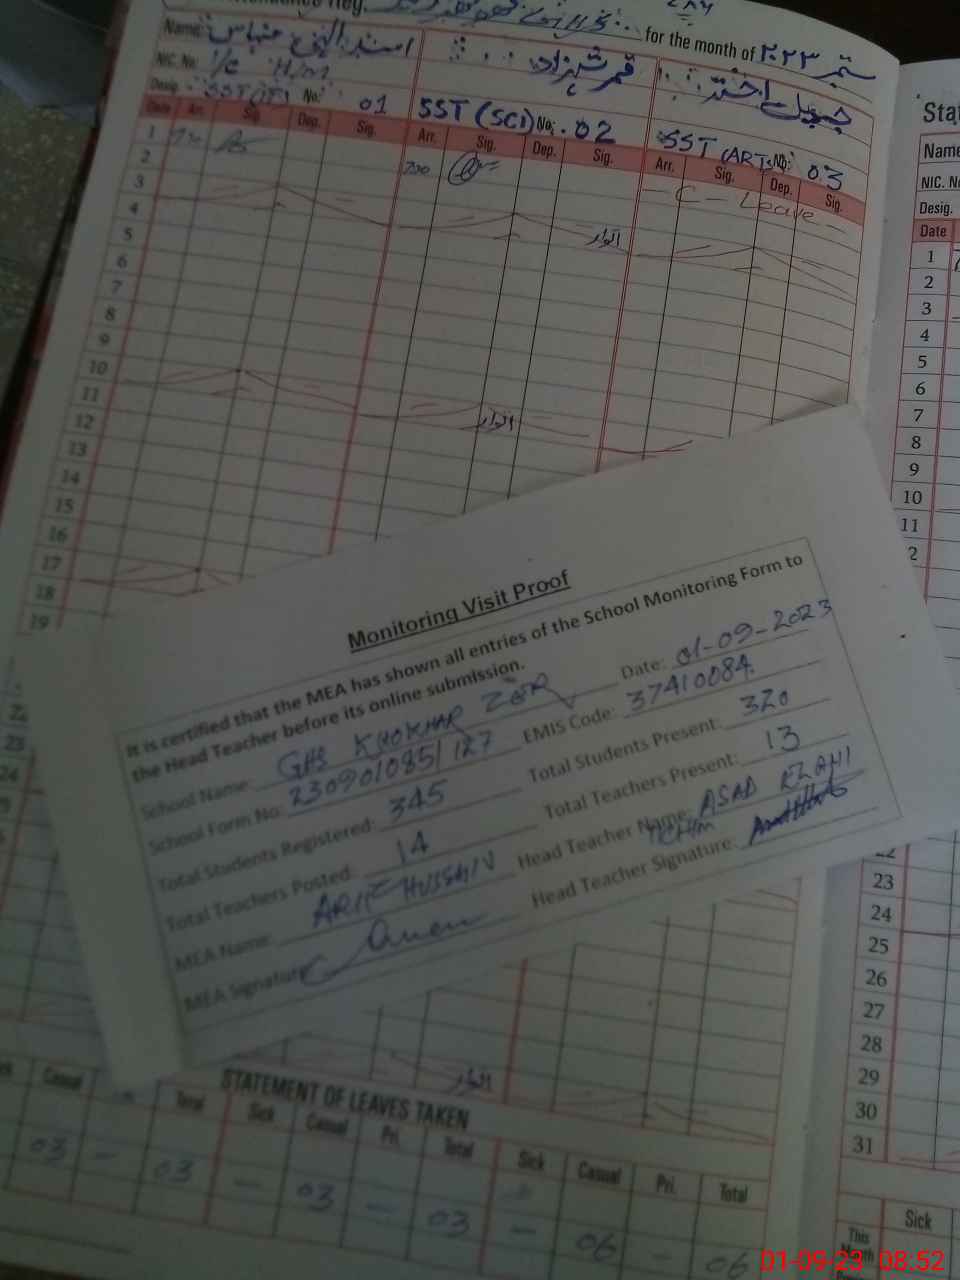 for the month of ستمبر ۲۰۲۳
Name: قمر شہزاد جمیل اختر
NIC. No: I/C H/M
Desig. SST (IT) No: 01 SST (SCI) No: 02 SST (ARTS) No: 03
Date Arr. Sig. Dep. Sig. Arr. Sig. Dep. Sig. Arr. Sig. Dep. Sig.
1 730 700 - C - Leave -
2
3 اتوار
4
5
6
7
8
9
10 اتوار
11
12
13
14
15
16
17
18
19
Monitoring Visit Proof
It is certified that the MEA has shown all entries of the School Monitoring Form to
the Head Teacher before its online submission.
School Name: GHS KHOKHAR ZER Date: 01-09-2023
School Form No: 2309010851127 EMIS Code: 37410084
Total Students Registered: 345 Total Students Present: 320
Total Teachers Posted: 14 Total Teachers Present: 13
MEA Name: Head Teacher Name: ASAD
MEA Signature: Head Teacher Signature:
23
24
اتوار
STATEMENT OF LEAVES TAKEN
Casual Total Sick Casual Pri. Total Sick Casual Pri. Total
03 - 03 - 03 - 03 - 06 - 06
Name
NIC. No
Desig.
Date
1
2
3
4
5
6
7
8
9
10
11
2
22
23
24
25
26
27
28
29
30
31
Sick
This
Month
01-09-23 08:52